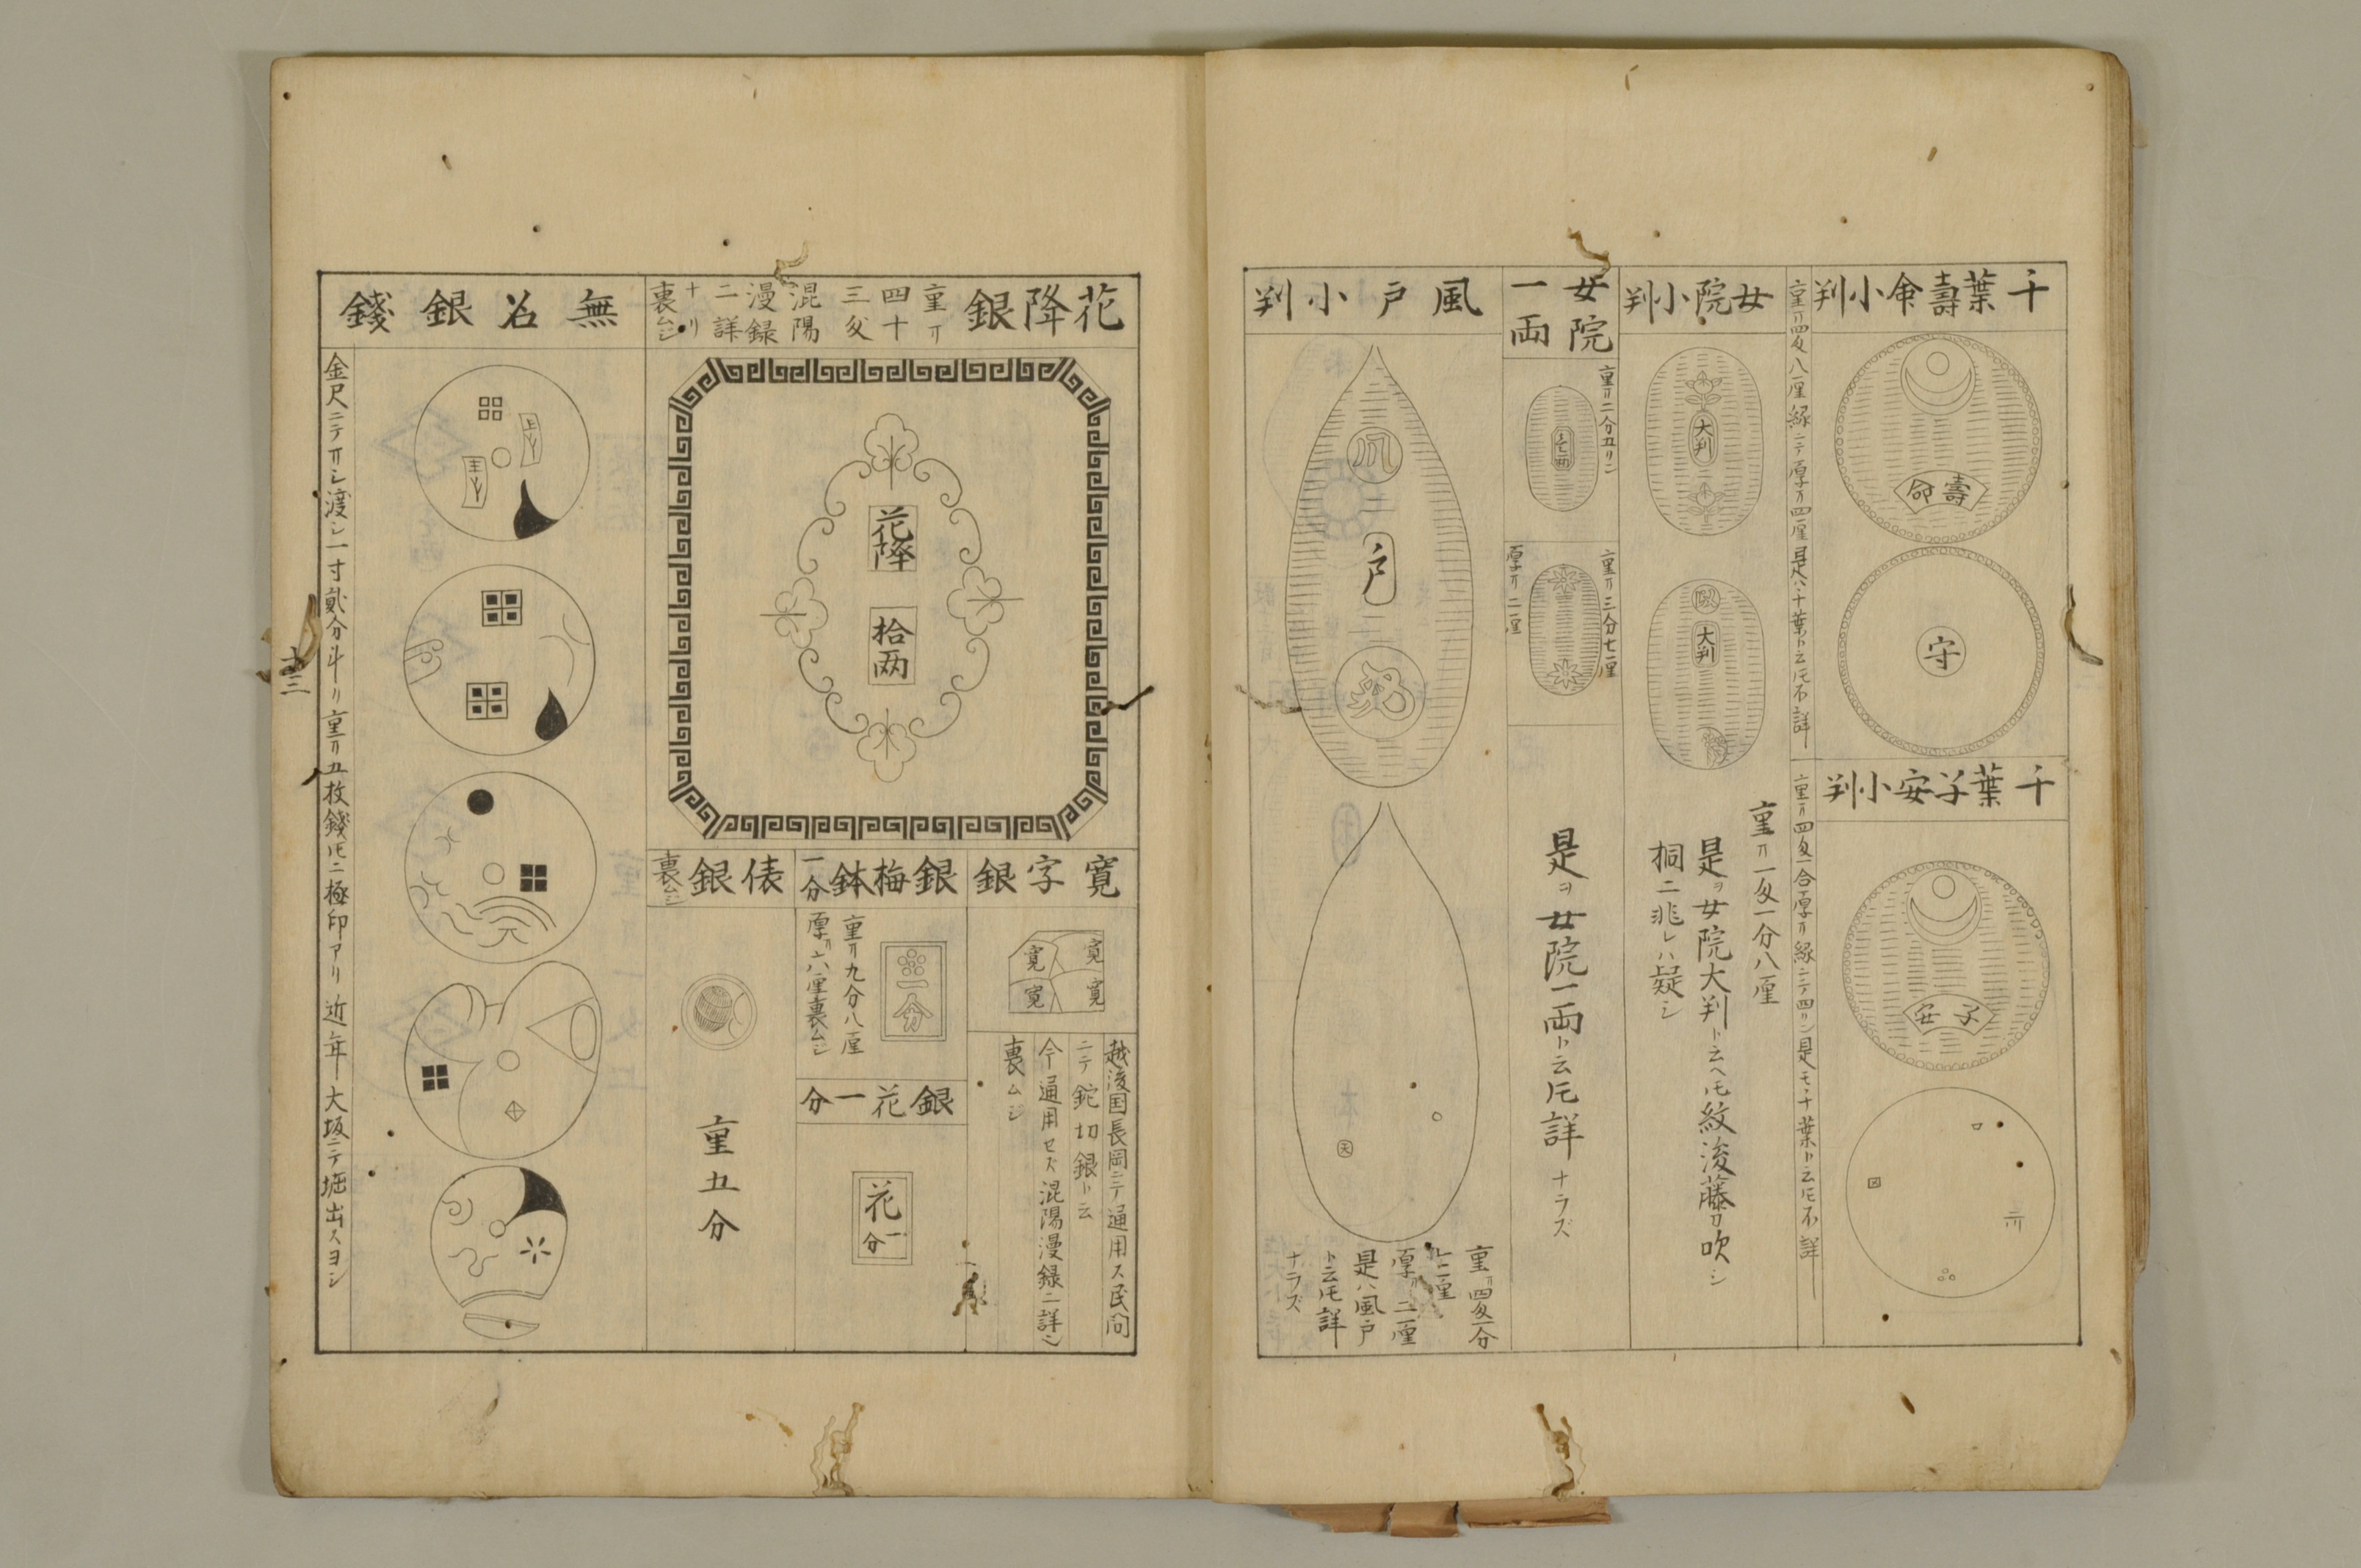 千葉壽命小判
壽命
守
重サ四匁八厘縁ニテ厚サ四厘是ハ千葉ト云ヒ不詳
千葉子安小判
子安
重サ四匁一合厚サ縁ニテ四リン是モ千葉ト云ヒ不詳
女院小判
大判
大判
重サ一匁一分八厘
是ヲ女院大判ト云ヘ𪜈紋後藤ノ吹シ
桐ニ非レハ疑シ
女院
一両
重サ二分五リン
重サ三分七厘
厚サ二厘
是ヲ女院一両ト云𪜈詳ナラズ
風戸小判
戸
天
重サ四匁一分
二厘
厚サ二厘
是ハ風戸
ト云𪜈詳
ナラズ
花降銀
重サ
四十
三匁
混陽
漫録
二詳
ナリ
裏ムジ
花降
拾两
寛字銀
寛
寛
寛
寛
越後国長岡ニテ通用ス民間
ニテ鉈切銀ト云
今通用セズ混陽漫録ニ詳シ
裏ムジ
銀梅鉢
一分
一分
重サ九分八厘
厚サ六厘裏ムジ
銀花一分
花
一分
俵銀
裏ムジ
重五分
無名銀錢
金尺ニテサシ渡シ一寸貮分斗リ重サ五枚錢𪜈ニ極印アリ近年大坂ニテ堀出スヨシ
十三